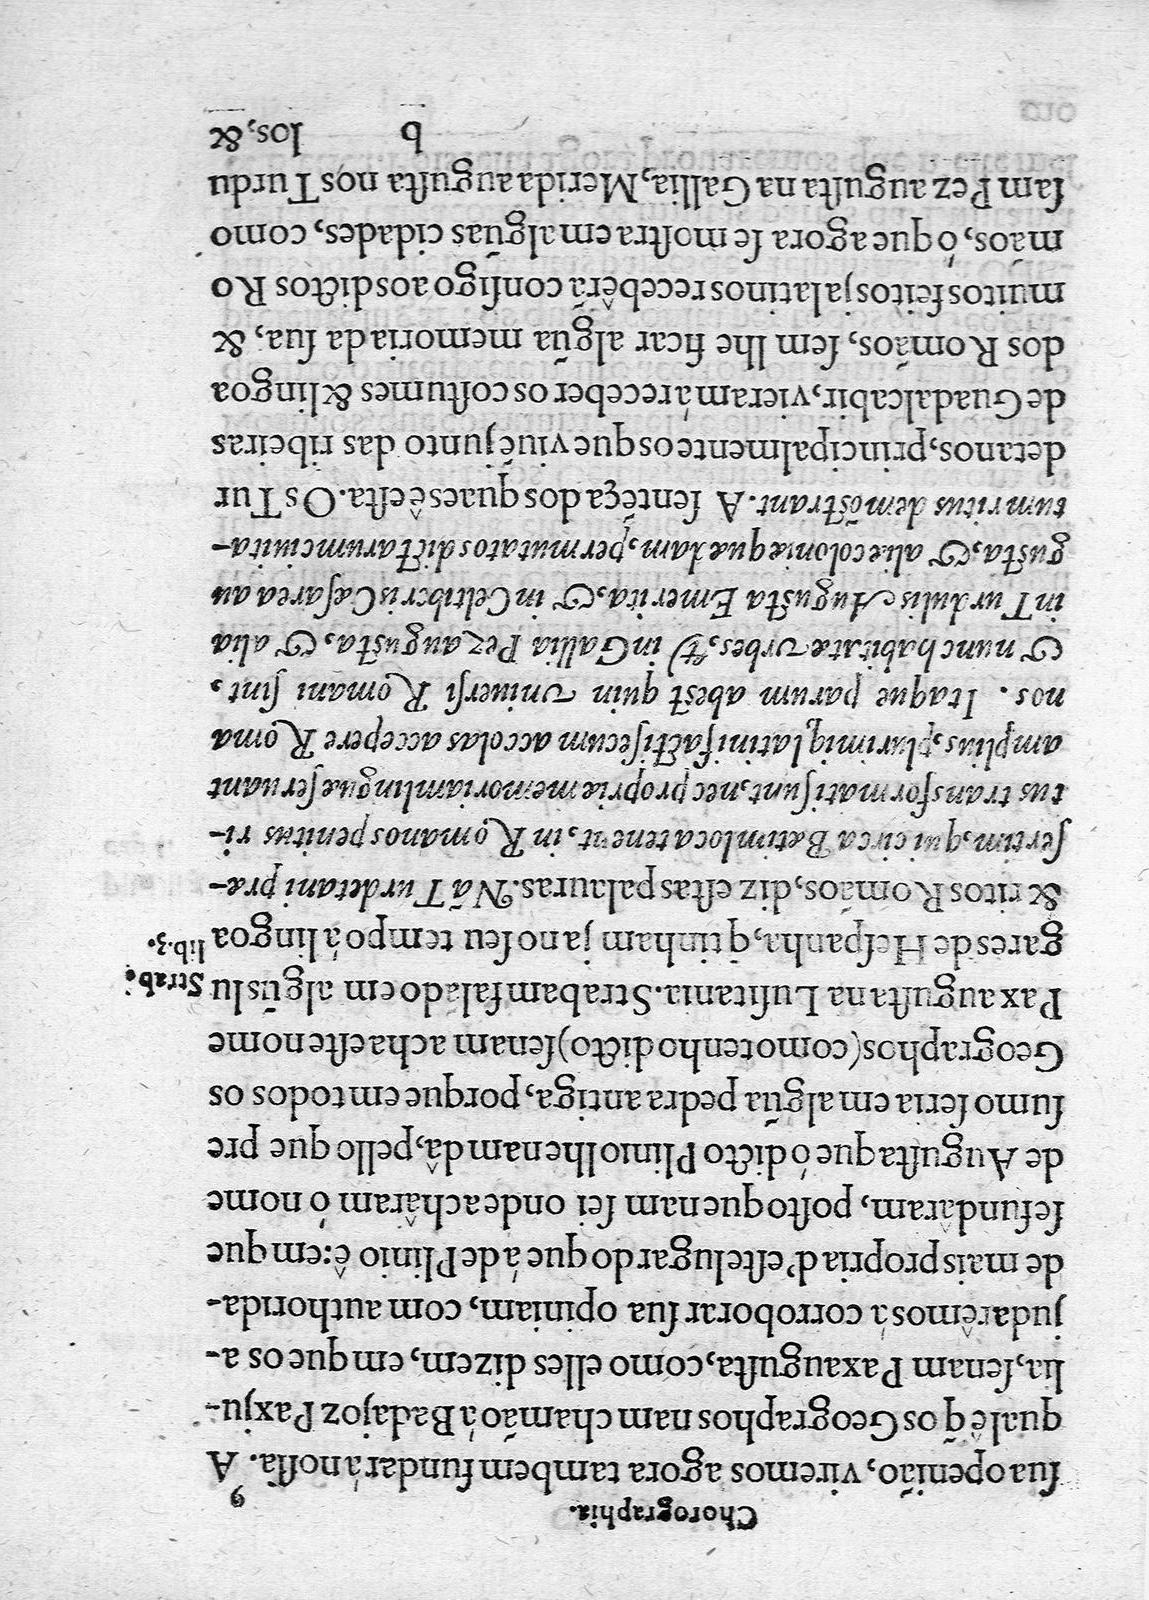 Chorographia. 9
ſua openião, viremos agora tambem fundar á noſſa. A
qual ê q̃ os Geographos nam chamão á Badajoz Paxju-
lia, ſenam Paxauguſta, como elles dizem, em que os a-
judarêmos á corroborar ſua opiniam, com authorida-
de mais propria d'eſte lugar do que á de Plinio ê: em que
ſe fundâram, poſto que nam ſei onde achâram ó nome
de Auguſta que ó dicto Plinio lhe nam dâ, pello que pre
ſumo ſeria em algũa pedra antiga, porque em todos os
Geographos (como tenho dicto) ſenam acha eſte nome
Paxauguſta na Luſitania. Strabam falãdo em algũs lu
Strab.
gares de Heſpanha, q̃ tinham ja no ſeu tempo á lingoa
lib. 3.
& ritos Romãos, diz eſtas palauras. Nã Turdetani præ-
ſertim, qui circa Bætim loca tenẽt, in Romanos penitus ri-
tus transformati ſunt, nec propriæ memoriam linguæ ſeruant
amplius, plurimiq; latini facti ſecum accolas accepere Roma
nos. Itaque parum abeſt quin vniuerſi Romani ſint,
& nunc habitatæ vrbes, & in Gallia Pez auguſta, & alia
in Turdulis Auguſta Emerita, & in Celtiberis Cæſarea au
guſta, & aliæ coloniæ quædam, permutatos dictarum ciuita-
tum ritus demõſtrant. A ſentẽça dos quaes ê eſta. Os Tur
detanos, principalmente os que viuẽ junto das ribeiras
de Guadalcabir, vieram á receber os coſtumes & lingoa
dos Romãos, ſem lhe ficar algũa memoria da ſua, &
muitos feitos ja latinos recebêrã conſigo aos dictos Ro
mãos, ó que agora ſe moſtra em algũas cidades, como
ſam Pez auguſta na Gallia, Merida auguſta nos Turdu
b los, &